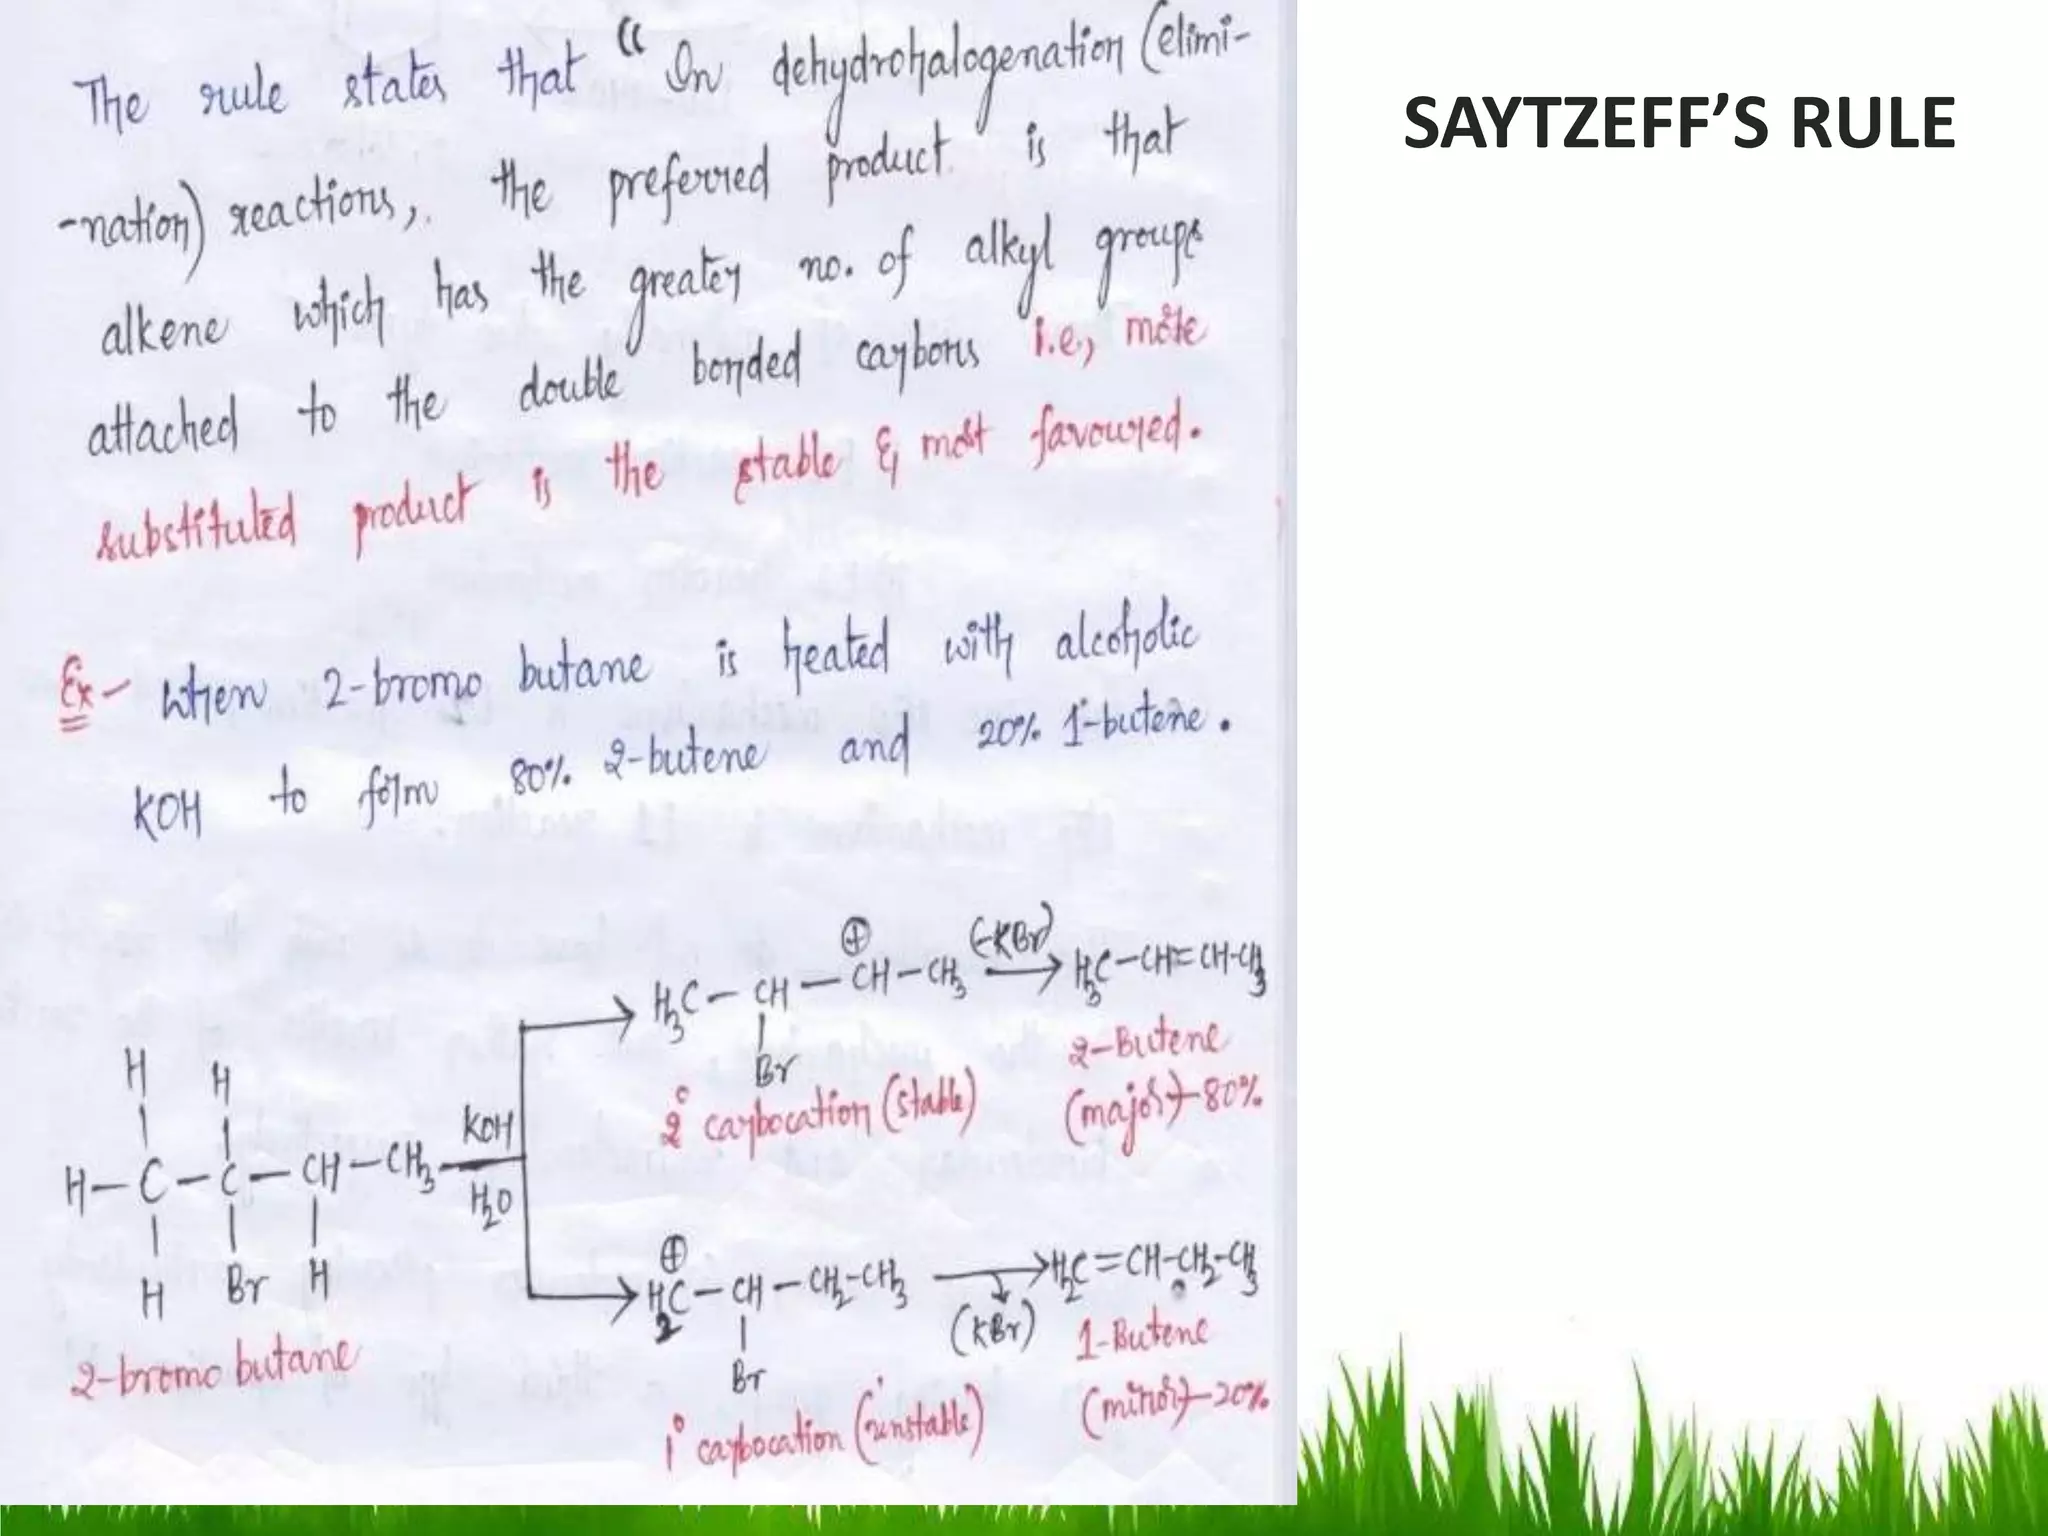 SAYTZEFF’S RULE
The rule states that “In dehydrohalogenation (elimi-
-nation) reactions, the preferred product is that
alkene which has the greater no. of alkyl groups
attached to the double bonded carbons i.e, more
substituted product is the stable & most favoured.
Ex- when 2-bromo butane is heated with alcoholic
KOH to form 80% 2-butene and 20% 1-butene.
H H
H-C-C-CH-CH3
H Br H
2-bromo butane
KOH
H2O
⊕
H3C-CH-CH-CH3
Br
2° carbocation (stable)
(-KBr)
H3C-CH=CH-CH3
2-Butene
(major)-80%
⊕
H2C-CH-CH2-CH3
Br
1° carbocation (unstable)
(KBr)
H2C=CH-CH2-CH3
1-Butene
(minor)-20%